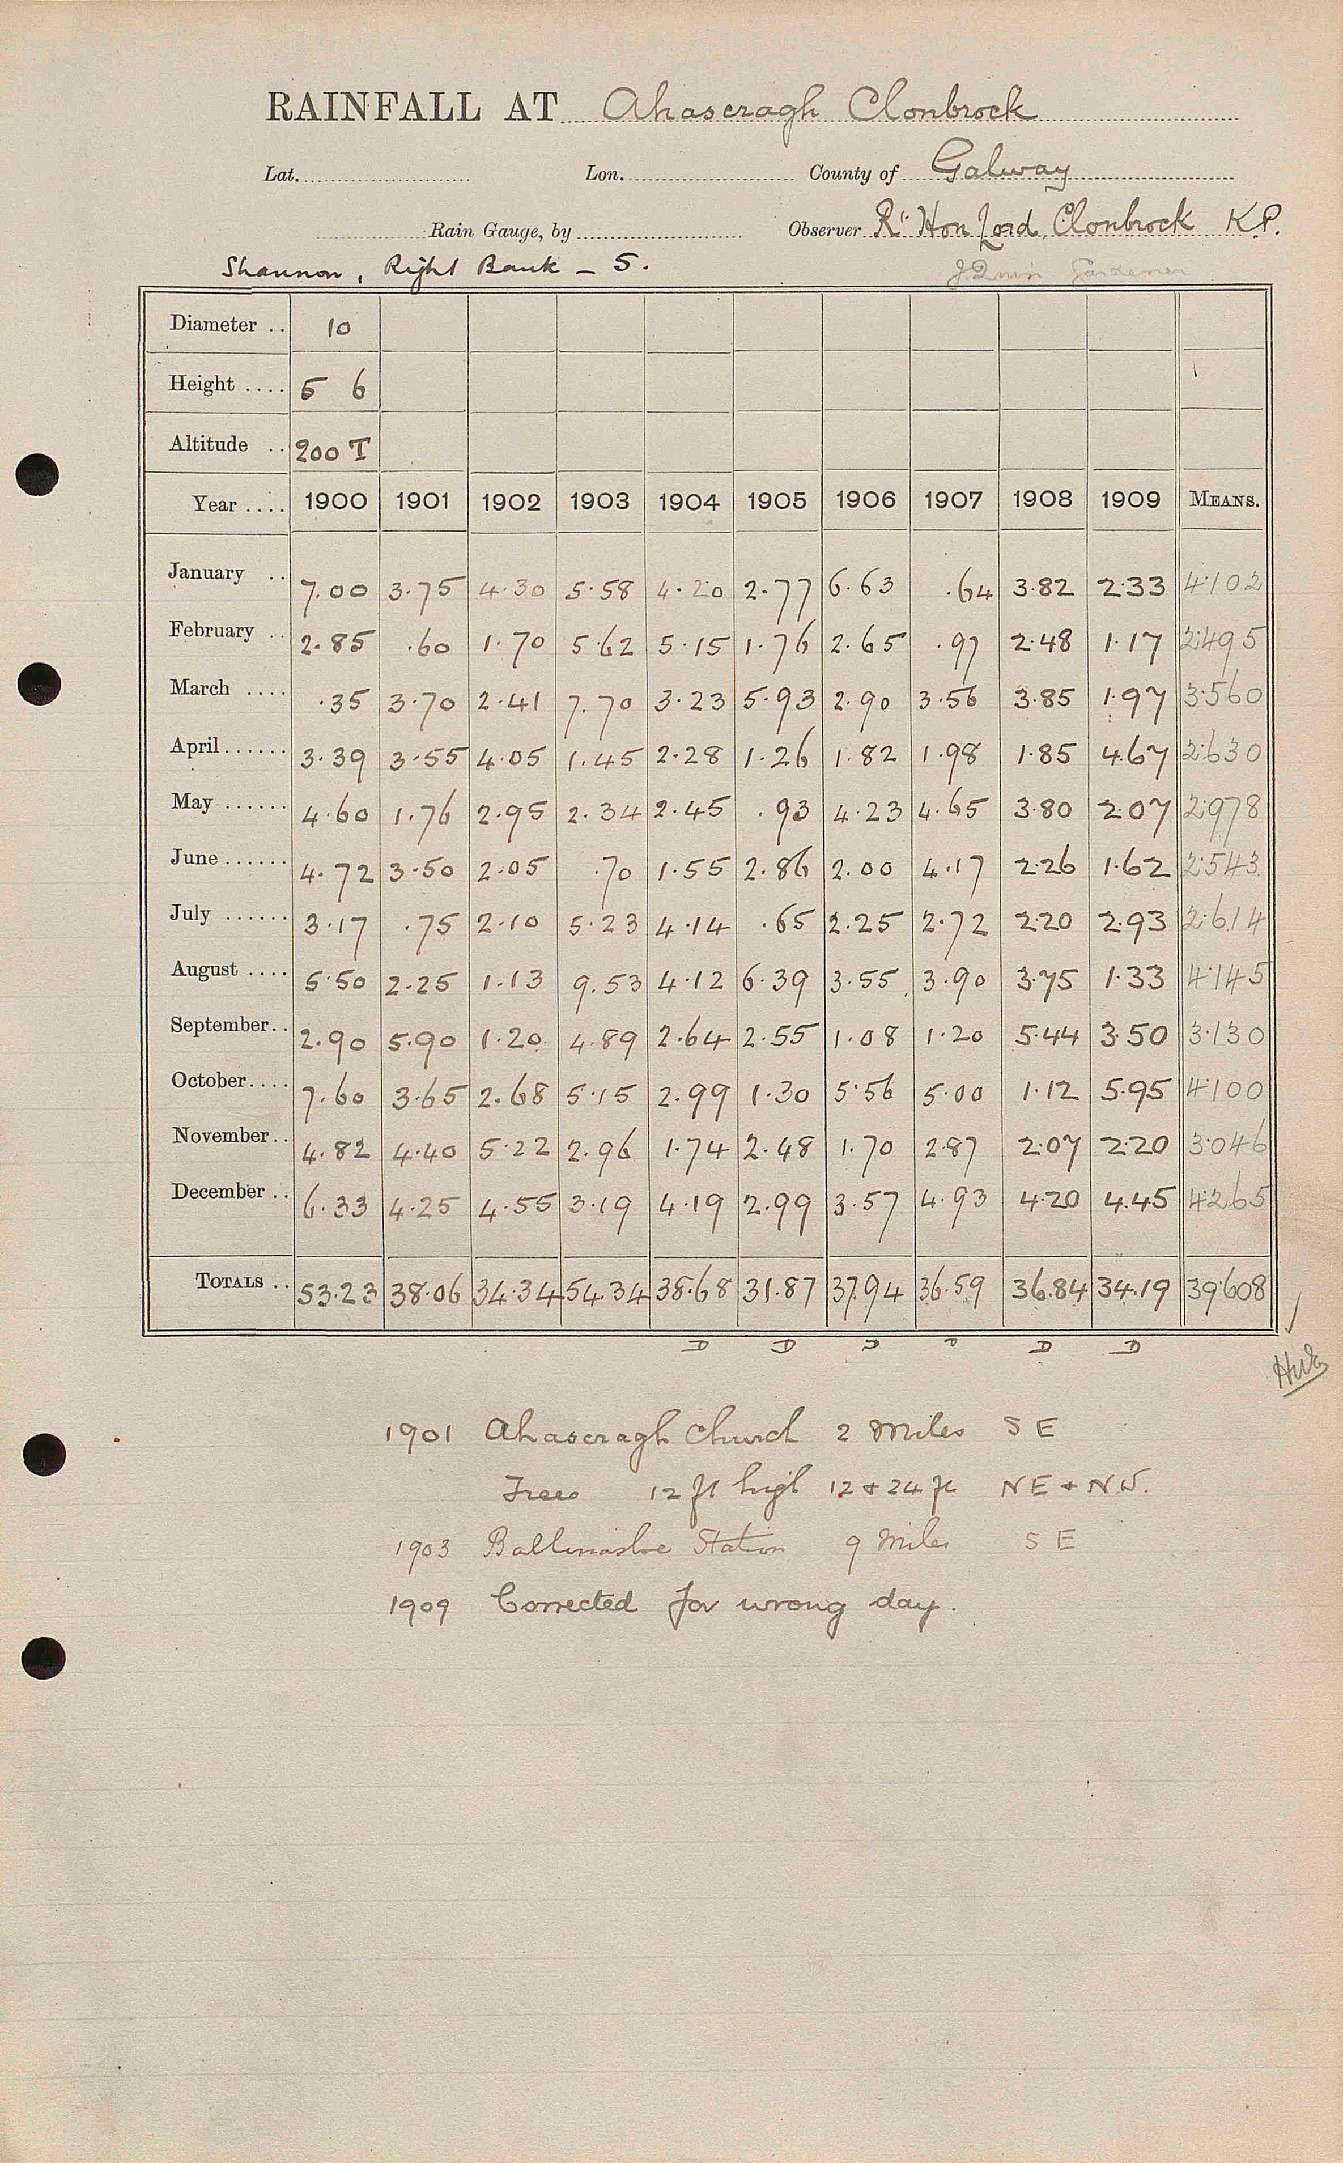 RAINFALL AT Ahascragh Clonbrock
Lat. Lon. County of Galway
Rain Gauge, by Observer Rt Hon Lord Clonbrock K.P.
Shannon, Right Bank – S. J. Quin Gardener
Diameter .. 10
Height .... 5 6
Altitude .. 200 T
Year .... 1900 1901 1902 1903 1904 1905 1906 1907 1908 1909 MEANS.
January .. 7.00 3.75 4.30 5.58 4.20 2.77 6.63 .64 3.82 2.33 4.102
February .. 2.85 .60 1.70 5.62 5.15 1.76 2.65 .97 2.48 1.17 2.495
March .... .35 3.70 2.41 7.70 3.23 5.93 2.90 3.56 3.85 1.97 3.560
April ...... 3.39 3.55 4.05 1.45 2.28 1.26 1.82 1.98 1.85 4.67 2.630
May ...... 4.60 1.76 2.95 2.34 2.45 .93 4.23 4.65 3.80 2.07 2.978
June ...... 4.72 3.50 2.05 .70 1.55 2.86 2.00 4.17 2.26 1.62 2.543
July ...... 3.17 .75 2.10 5.23 4.14 .65 2.25 2.72 2.20 2.93 2.614
August .... 5.50 2.25 1.13 9.53 4.12 6.39 3.55 3.90 3.75 1.33 4.145
September .. 2.90 5.90 1.20 4.89 2.64 2.55 1.08 1.20 5.44 3.50 3.130
October .... 7.60 3.65 2.68 5.15 2.99 1.30 5.56 5.00 1.12 5.95 4.100
November .. 4.82 4.40 5.22 2.96 1.74 2.48 1.70 2.87 2.07 2.20 3.046
December .. 6.33 4.25 4.55 3.19 4.19 2.99 3.57 4.93 4.20 4.45 4.265
TOTALS .. 53.23 38.06 34.34 54.34 38.68 31.87 37.94 36.59 36.84 34.19 39.608
D D D D D D
1901 Ahascragh Church 2 Miles S E
Trees 12 ft high 12 + 24 ft NE + NW.
1903 Ballinasloe Station 9 Miles S E
1909 Corrected for wrong day.